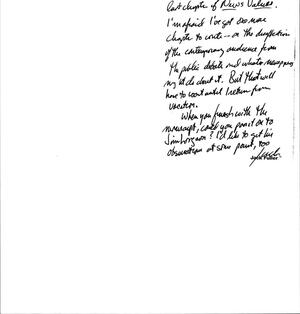 last chapter of News Values.
I'm afraid I've got one more
chapter to write -- on the defection
of the contemporary audience from
the public debate and what newspapers
might do about it. But that will
have to wait until I return from
vacation.
When you finish with the
manuscript, could you pass it on to
Jim? I'd like to get his
observations at some point, too
Jack